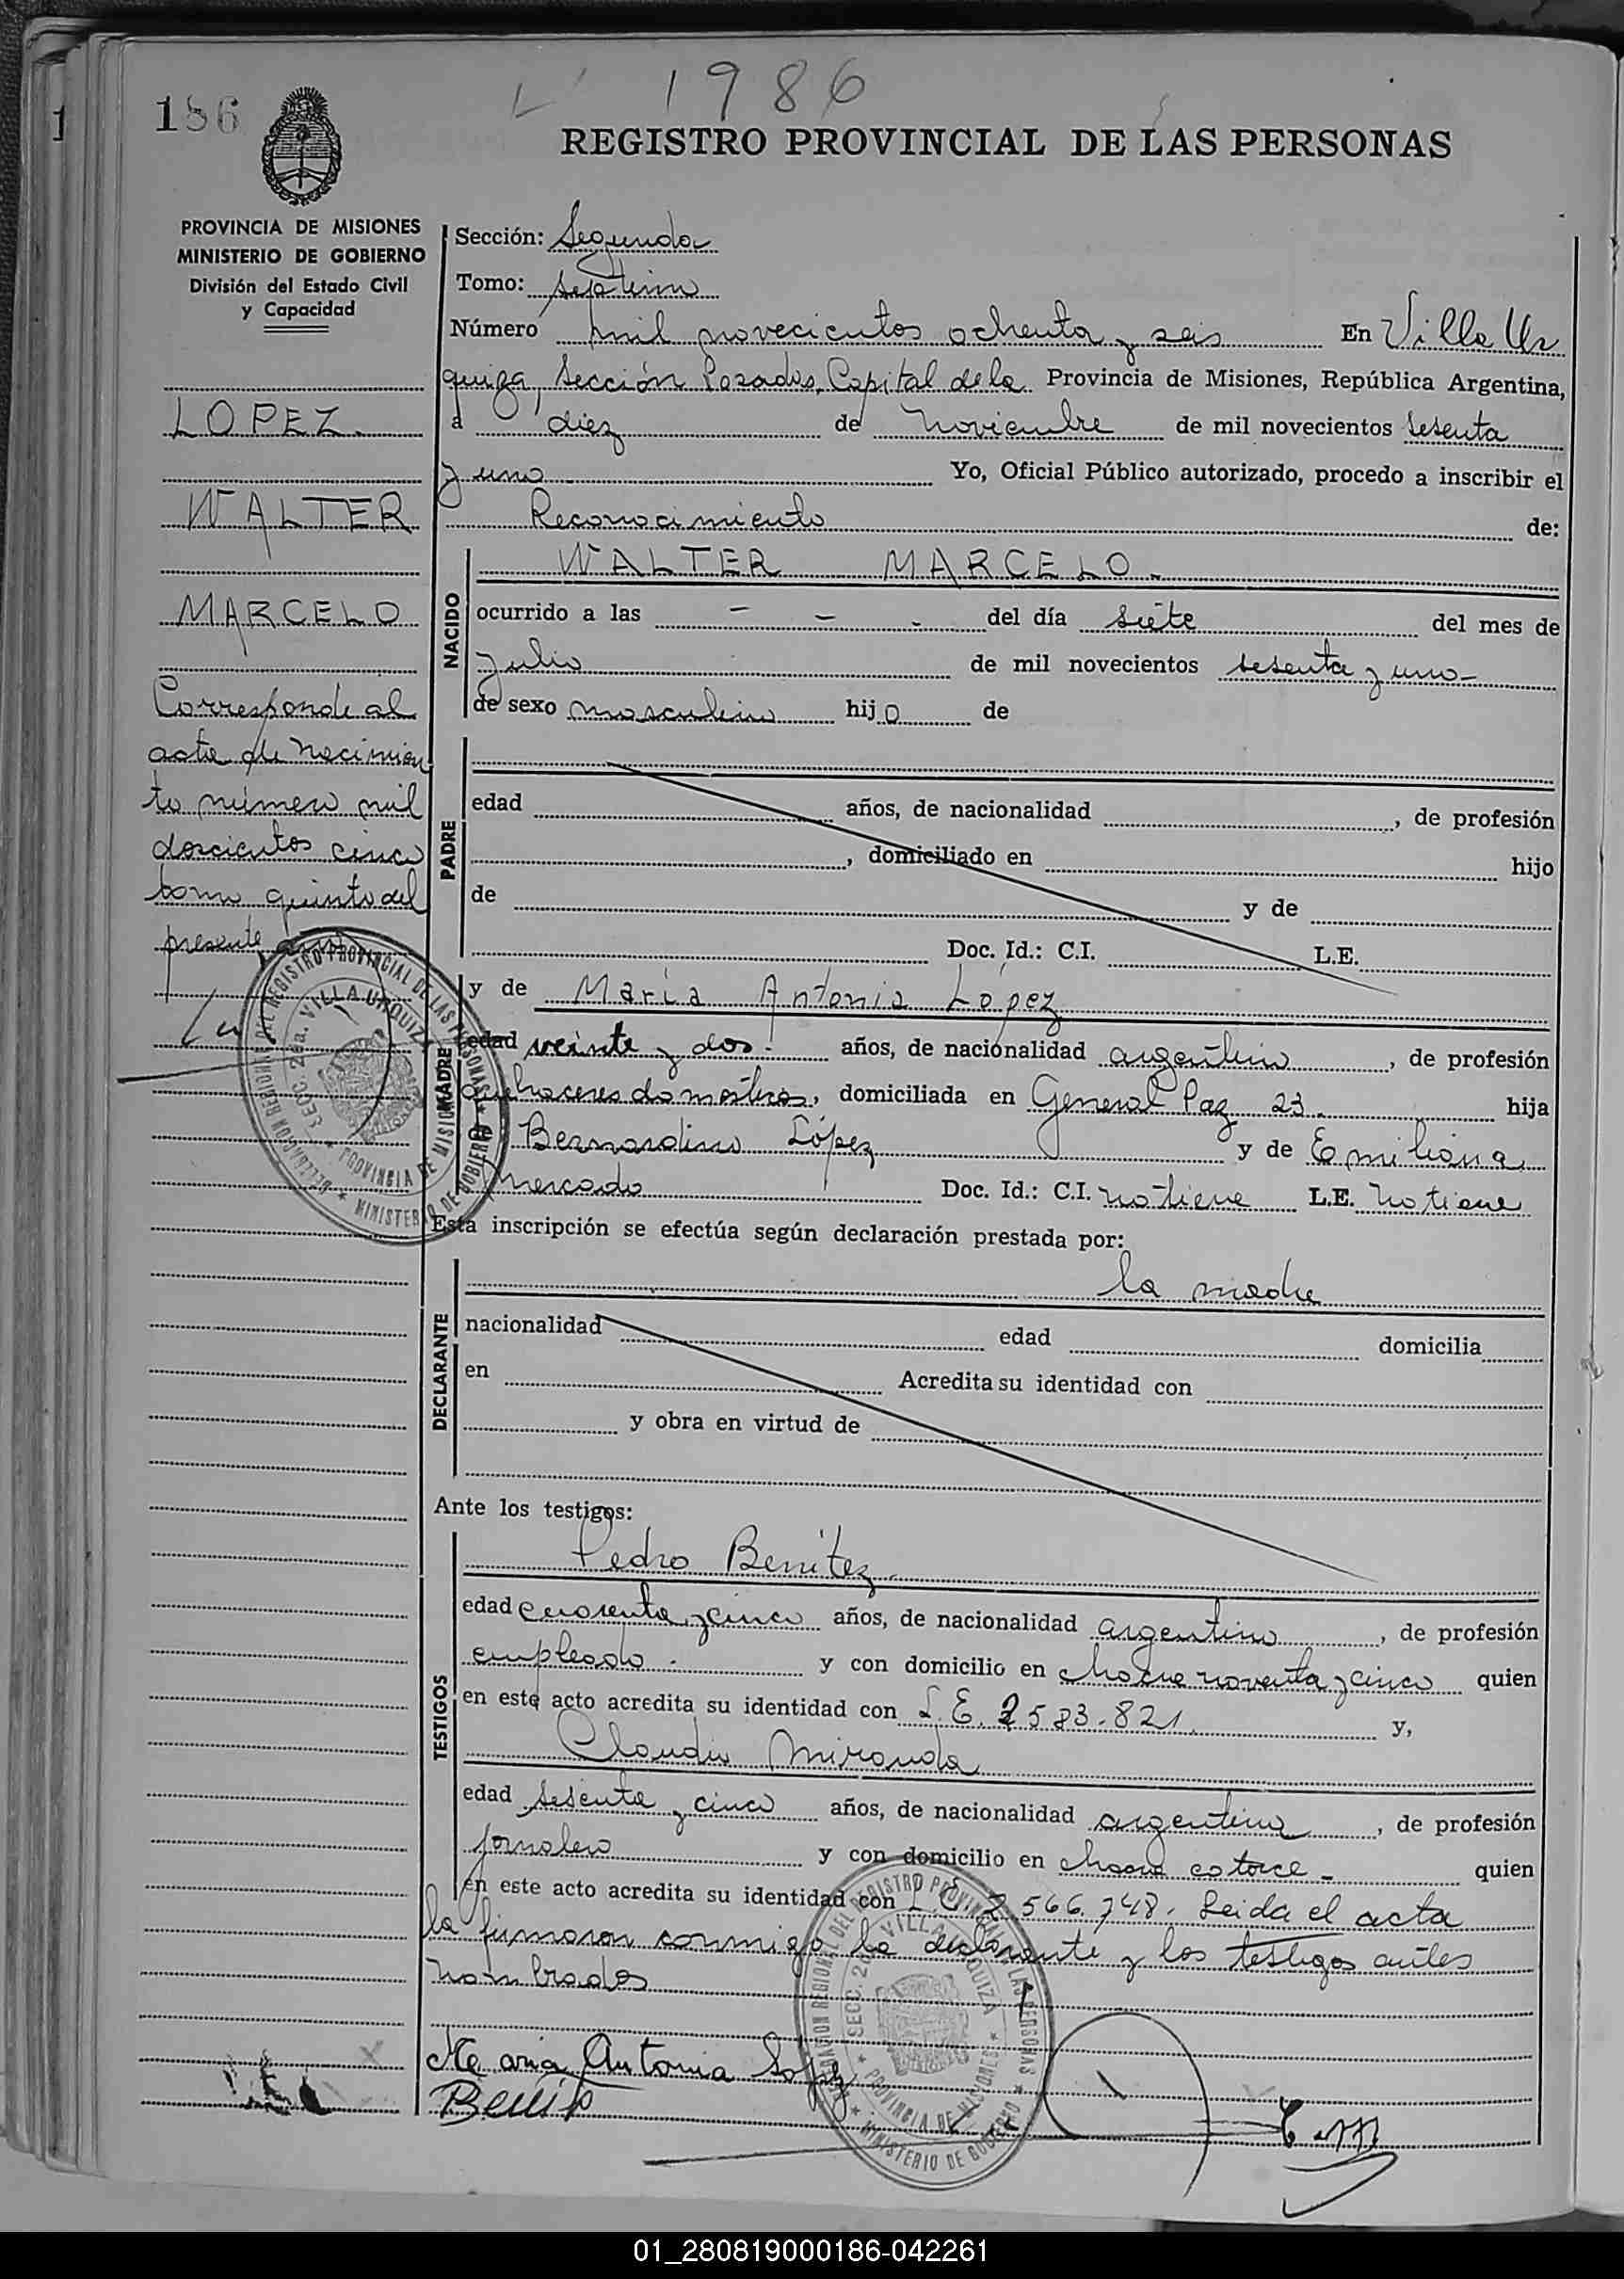 1986
186
REGISTRO PROVINCIAL DE LAS PERSONAS
PROVINCIA DE MISIONES
MINISTERIO DE GOBIERNO
División del Estado Civil
y Capacidad
LOPEZ
WALTER
MARCELO
Corresponde al
acta de nacimien
to número mil
doscientos cinco
tomo quinto del
presente año
Sección: Segunda
Tomo: septimo
Número mil novecientos ochenta y seis En Villa Ur
quiza, Sección Posadas, Capital de la Provincia de Misiones, República Argentina,
a diez de Noviembre de mil novecientos sesenta
y uno Yo, Oficial Público autorizado, procedo a inscribir el
Reconocimiento de:
NACIDO
WALTER MARCELO.
ocurrido a las - - - del día siete del mes de
Julio de mil novecientos sesenta y uno-
de sexo masculino hijo de
PADRE
edad años, de nacionalidad , de profesión
, domiciliado en hijo
de y de
Doc. Id.: C.I. L.E.
MADRE
y de Maria Antonia Lopez
edad veinte y dos años, de nacionalidad argentina, de profesión
quehaceres domésticos, domiciliada en General Paz 23. hija
de Bernardino López y de Emiliana
Mercado Doc. Id.: C.I. no tiene L.E. no tiene
Esta inscripción se efectúa según declaración prestada por:
DECLARANTE
la madre
nacionalidad edad domicilia
en Acredita su identidad con
y obra en virtud de
Ante los testigos:
TESTIGOS
Pedro Benítez
edad cuarenta y cinco años, de nacionalidad argentino, de profesión
empleado y con domicilio en chacra noventa y cinco quien
en este acto acredita su identidad con L.E. 2583.821 y,
Claudio Miranda
edad sesenta y cinco años, de nacionalidad argentina, de profesión
jornalero y con domicilio en chacra catorce - quien
en este acto acredita su identidad con L.E. 2.566.748. Leida el acta
la firmaron conmigo la declarante y los testigos antes
nombrados
Maria Antonia Lopez
DELEGACION REGIONAL DEL REGISTRO PROVINCIAL DE LAS PERSONAS
SECC. 2da. VILLA URQUIZA
PROVINCIA DE MISIONES
MINISTERIO DE GOBIERNO
DELEGACION REGIONAL DEL REGISTRO PROVINCIAL DE LAS PERSONAS
SECC. 2da. VILLA URQUIZA
PROVINCIA DE MISIONES
MINISTERIO DE GOBIERNO
01_280819000186-042261